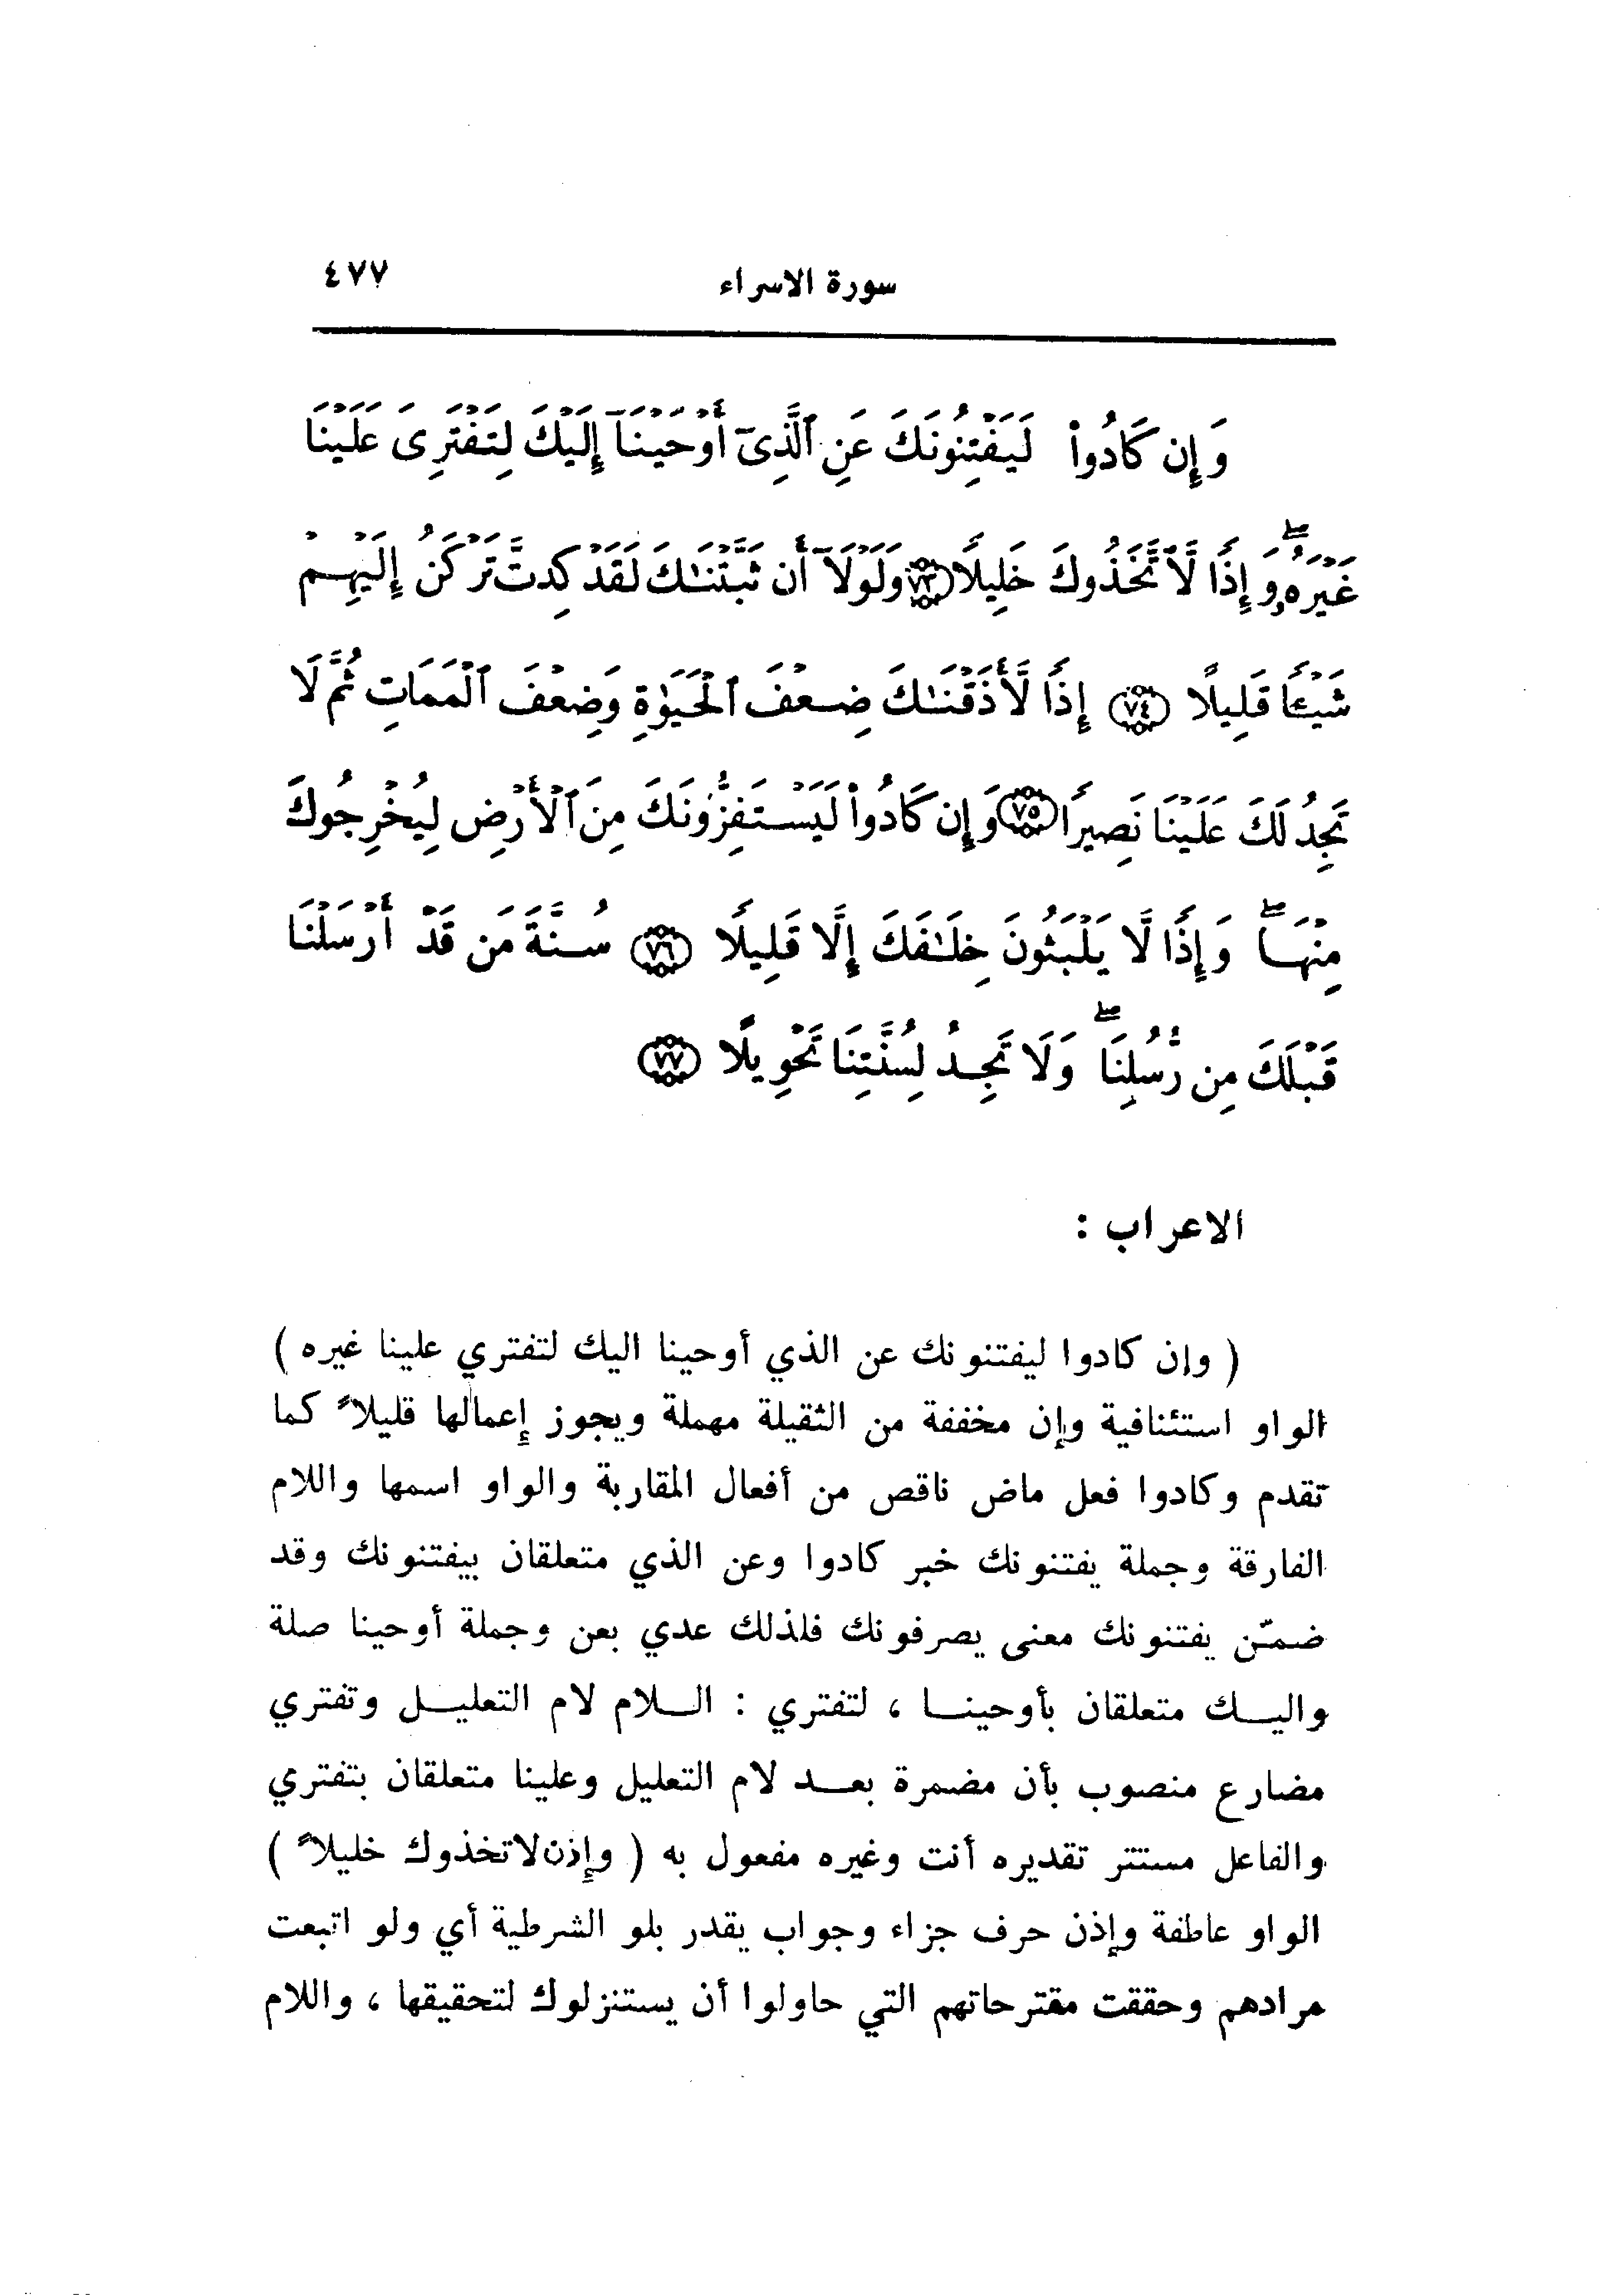 سورة الاسراء ٤٧٧
وَإِن كَادُوا۟ لَيَفْتِنُونَكَ عَنِ ٱلَّذِىٓ أَوْحَيْنَآ إِلَيْكَ لِتَفْتَرِىَ عَلَيْنَا
غَيْرَهُۥ ۖ وَإِذًا لَّٱتَّخَذُوكَ خَلِيلًا ﴿٧٣﴾ وَلَوْلَآ أَن ثَبَّتْنَـٰكَ لَقَدْ كِدتَّ تَرْكَنُ إِلَيْهِمْ
شَيْـًٔا قَلِيلًا ﴿٧٤﴾ إِذًا لَّأَذَقْنَـٰكَ ضِعْفَ ٱلْحَيَوٰةِ وَضِعْفَ ٱلْمَمَاتِ ثُمَّ لَا
تَجِدُ لَكَ عَلَيْنَا نَصِيرًا ﴿٧٥﴾ وَإِن كَادُوا۟ لَيَسْتَفِزُّونَكَ مِنَ ٱلْأَرْضِ لِيُخْرِجُوكَ
مِنْهَا ۖ وَإِذًا لَّا يَلْبَثُونَ خِلَـٰفَكَ إِلَّا قَلِيلًا ﴿٧٦﴾ سُنَّةَ مَن قَدْ أَرْسَلْنَا
قَبْلَكَ مِن رُّسُلِنَا ۖ وَلَا تَجِدُ لِسُنَّتِنَا تَحْوِيلًا ﴿٧٧﴾
الاعراب :
( وإن كادوا ليفتنونك عن الذي أوحينا اليك لتفتري علينا غيره )
الواو استئنافية وإن مخففة من الثقيلة مهملة ويجوز إعمالها قليلاً كما
تقدم وكادوا فعل ماض ناقص من أفعال المقاربة والواو اسمها واللام
الفارقة وجملة يفتنونك خبر كادوا وعن الذي متعلقان بيفتنونك وقد
ضمّن يفتنونك معنى يصرفونك فلذلك عدي بعن وجملة أوحينا صلة
واليـك متعلقان بأوحينـا ، لتفتري : الـلام لام التعليـل وتفتري
مضارع منصوب بأن مضمرة بعـد لام التعليل وعلينا متعلقان بتفتري
والفاعل مستتر تقديره أنت وغيره مفعول به ( وإذن لاتخذوك خليلاً )
الواو عاطفة وإذن حرف جزاء وجواب يقدر بلو الشرطية أي ولو اتبعت
مرادهم وحققت مقترحاتهم التي حاولوا أن يستنزلوك لتحقيقها ، واللام